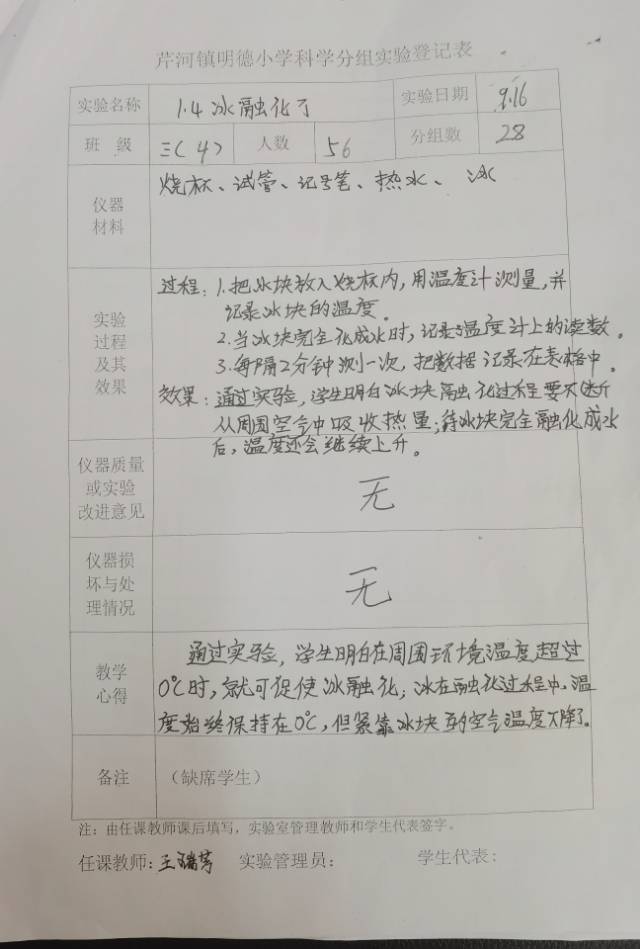 芹河镇明德小学科学分组实验登记表
实验名称 1.4冰融化了 实验日期 9.16
班 级 三(4) 人数 56 分组数 28
仪器材料 烧杯、试管、记号笔、热水、冰
实验过程及其效果
过程：1.把冰块放入烧杯内，用温度计测量，并
记录冰块的温度。
2.当冰块完全化成水时，记录温度计上的读数。
3.每隔2分钟测一次，把数据记录在表格中。
效果：通过实验，学生明白冰块融化过程要不断
从周围空气中吸收热量；待冰块完全融化成水
后，温度还会继续上升。
仪器质量或实验改进意见 无
仪器损坏与处理情况 无
教学心得
通过实验，学生明白在周围环境温度超过
0℃时，就可促使冰融化；冰在融化过程中，温
度始终保持在0℃，但紧靠冰块的空气温度下降了。
备注 （缺席学生）
注：由任课教师课后填写，实验室管理教师和学生代表签字。
任课教师：王瑞芳 实验管理员： 学生代表：